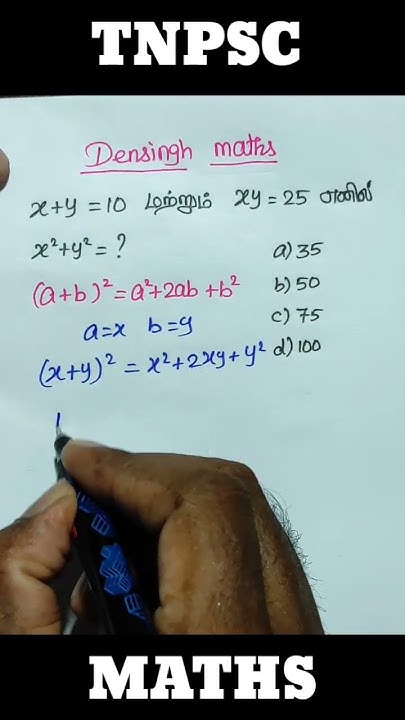 TNPSC
Densingh maths
x+y = 10 மற்றும் xy = 25 எனில்
x²+y² = ?
a) 35
b) 50
c) 75
d) 100
(a+b)² = a²+2ab+b²
a=x b=y
(x+y)² = x²+2xy+y²
MATHS